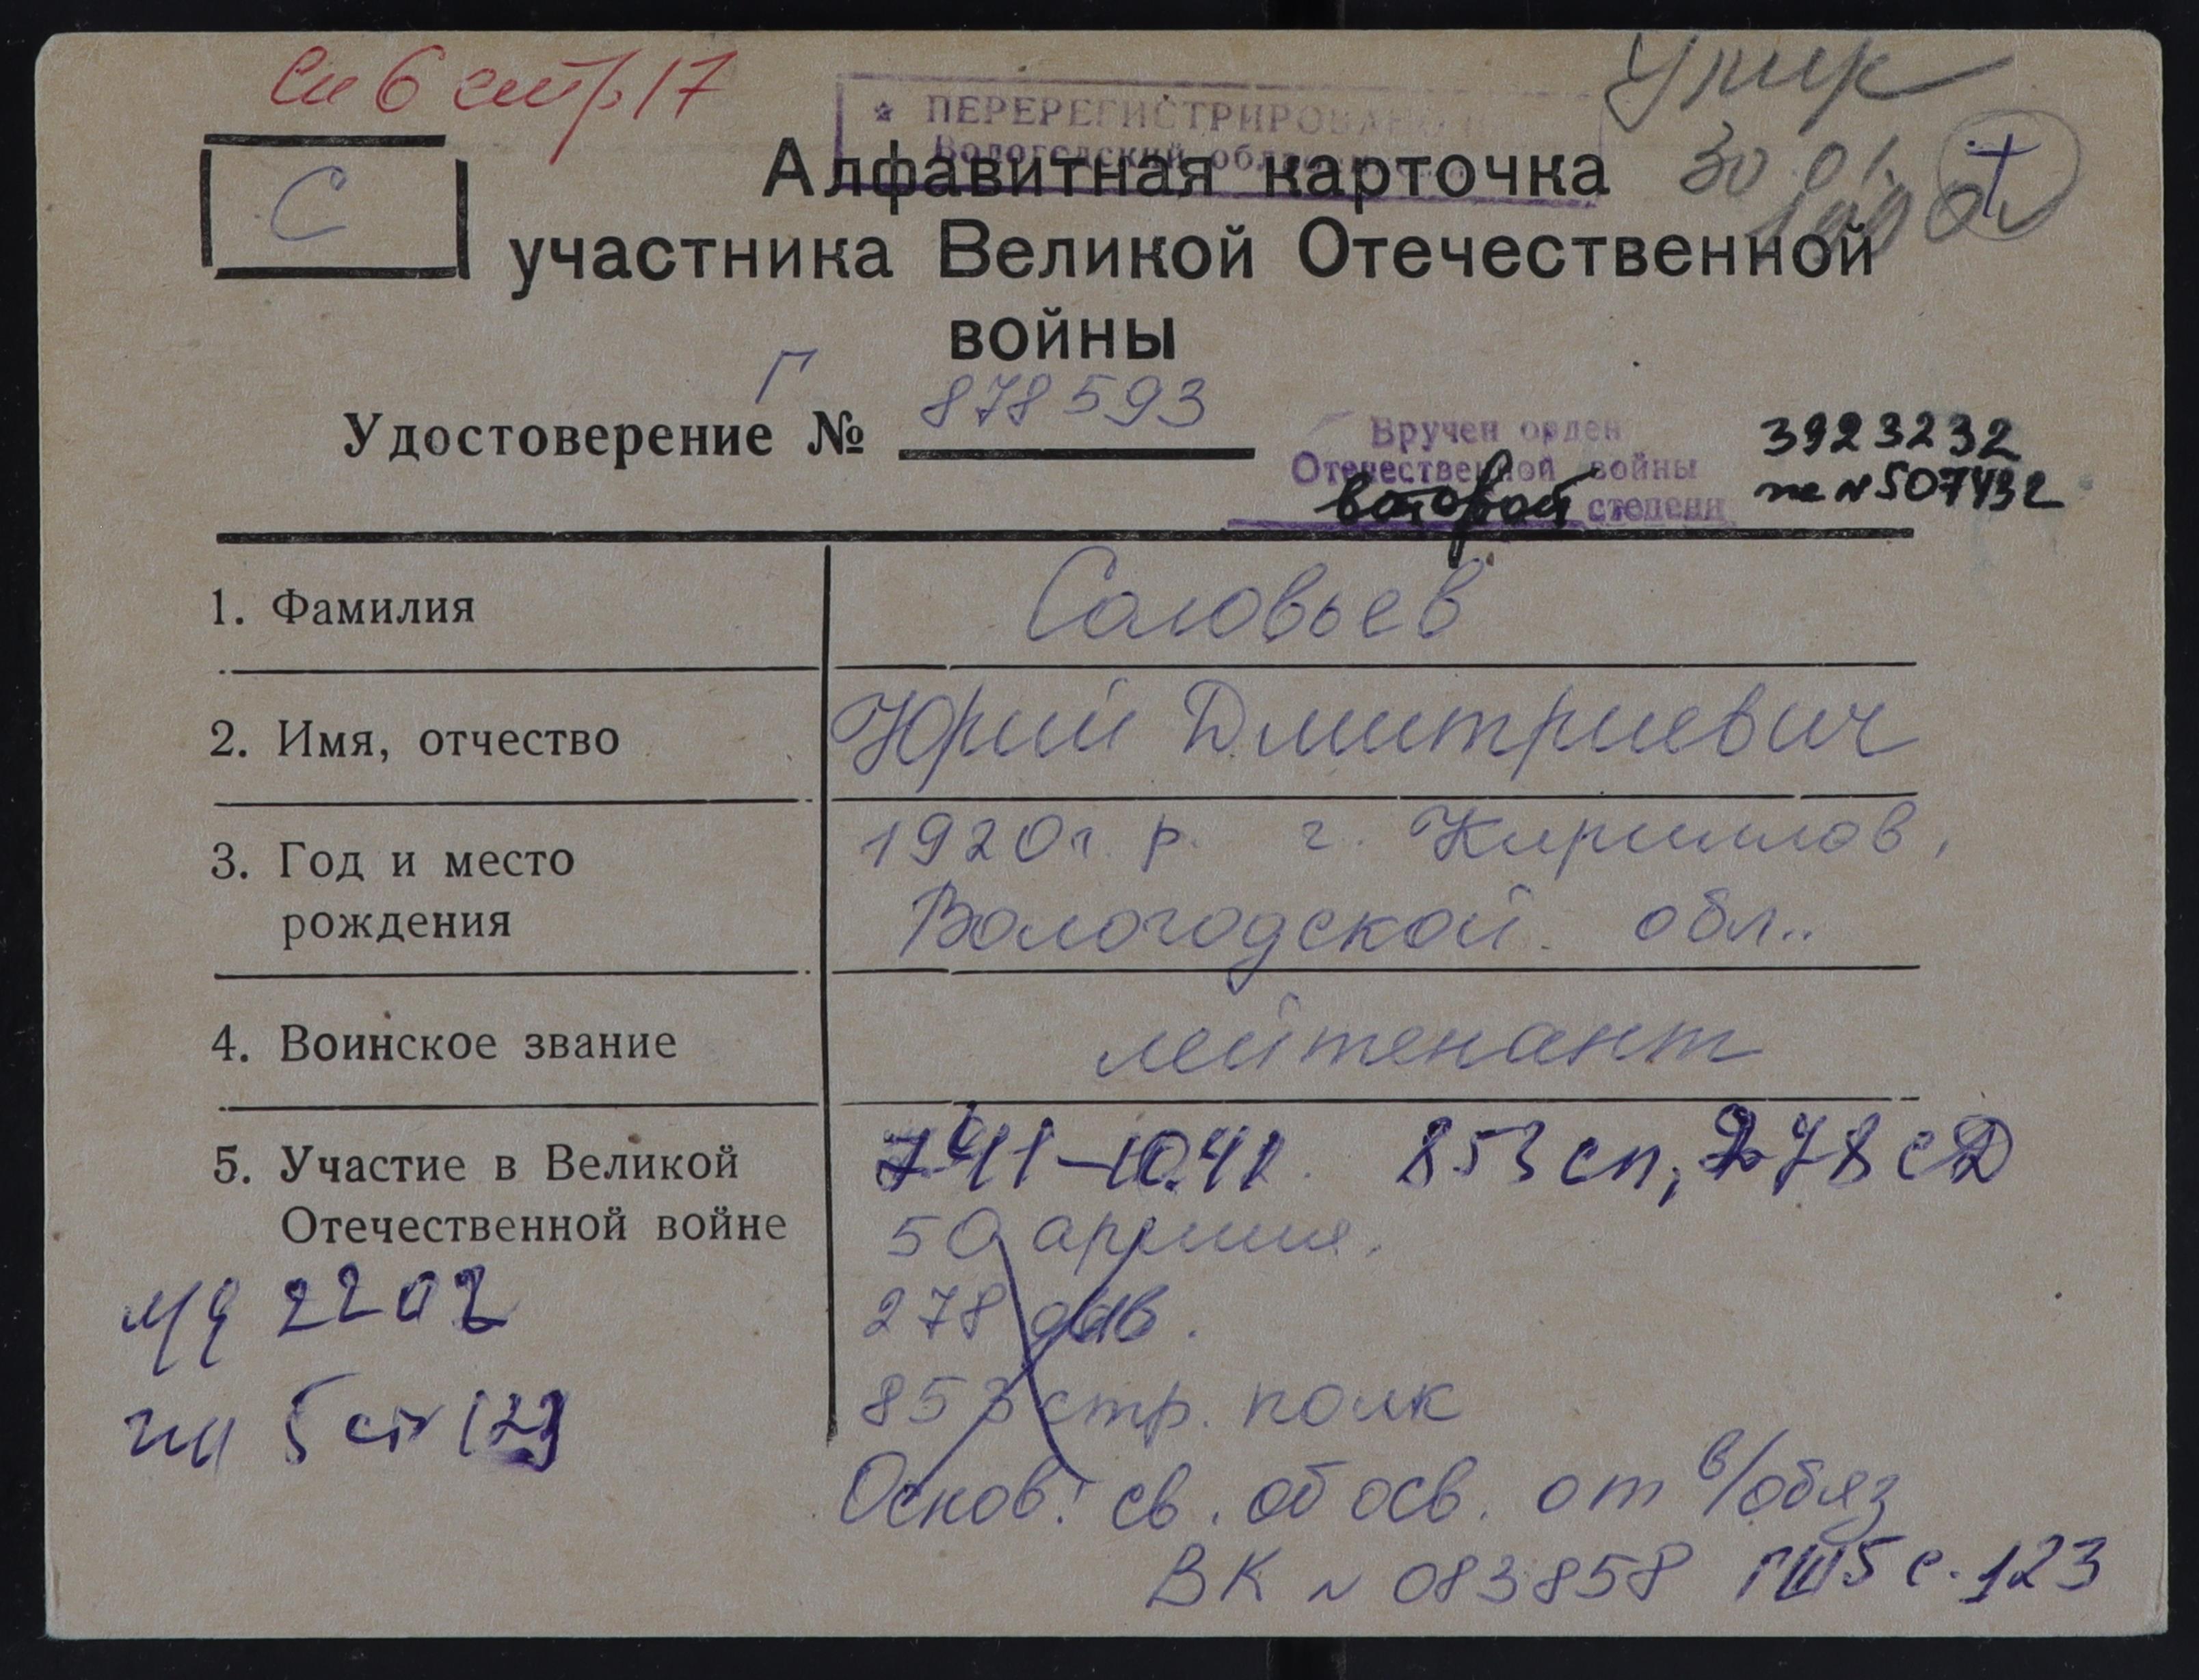 Сп 6 стр 17
* ПЕРЕРЕГИСТРИРОВАНО
Вологодский обл
умер
30 01.
С
Алфавитная карточка
участника Великой Отечественной
войны
Удостоверение № Г 878593
Вручен орден
Отечественной войны
второй степени
3923232
N 507432
1. Фамилия Соловьев
2. Имя, отчество Юрий Дмитриевич
3. Год и место рождения 1920 г. р. г. Кириллов,
Вологодской обл..
4. Воинское звание лейтенант
5. Участие в Великой
Отечественной войне
7.41–10.41. 853 сп, 278 сД
50 армия,
278 див.
853 стр. полк
Основ: св. об осв. от в/обяз
ВК N 083858 ГШ5 с. 123
2202
5 ст